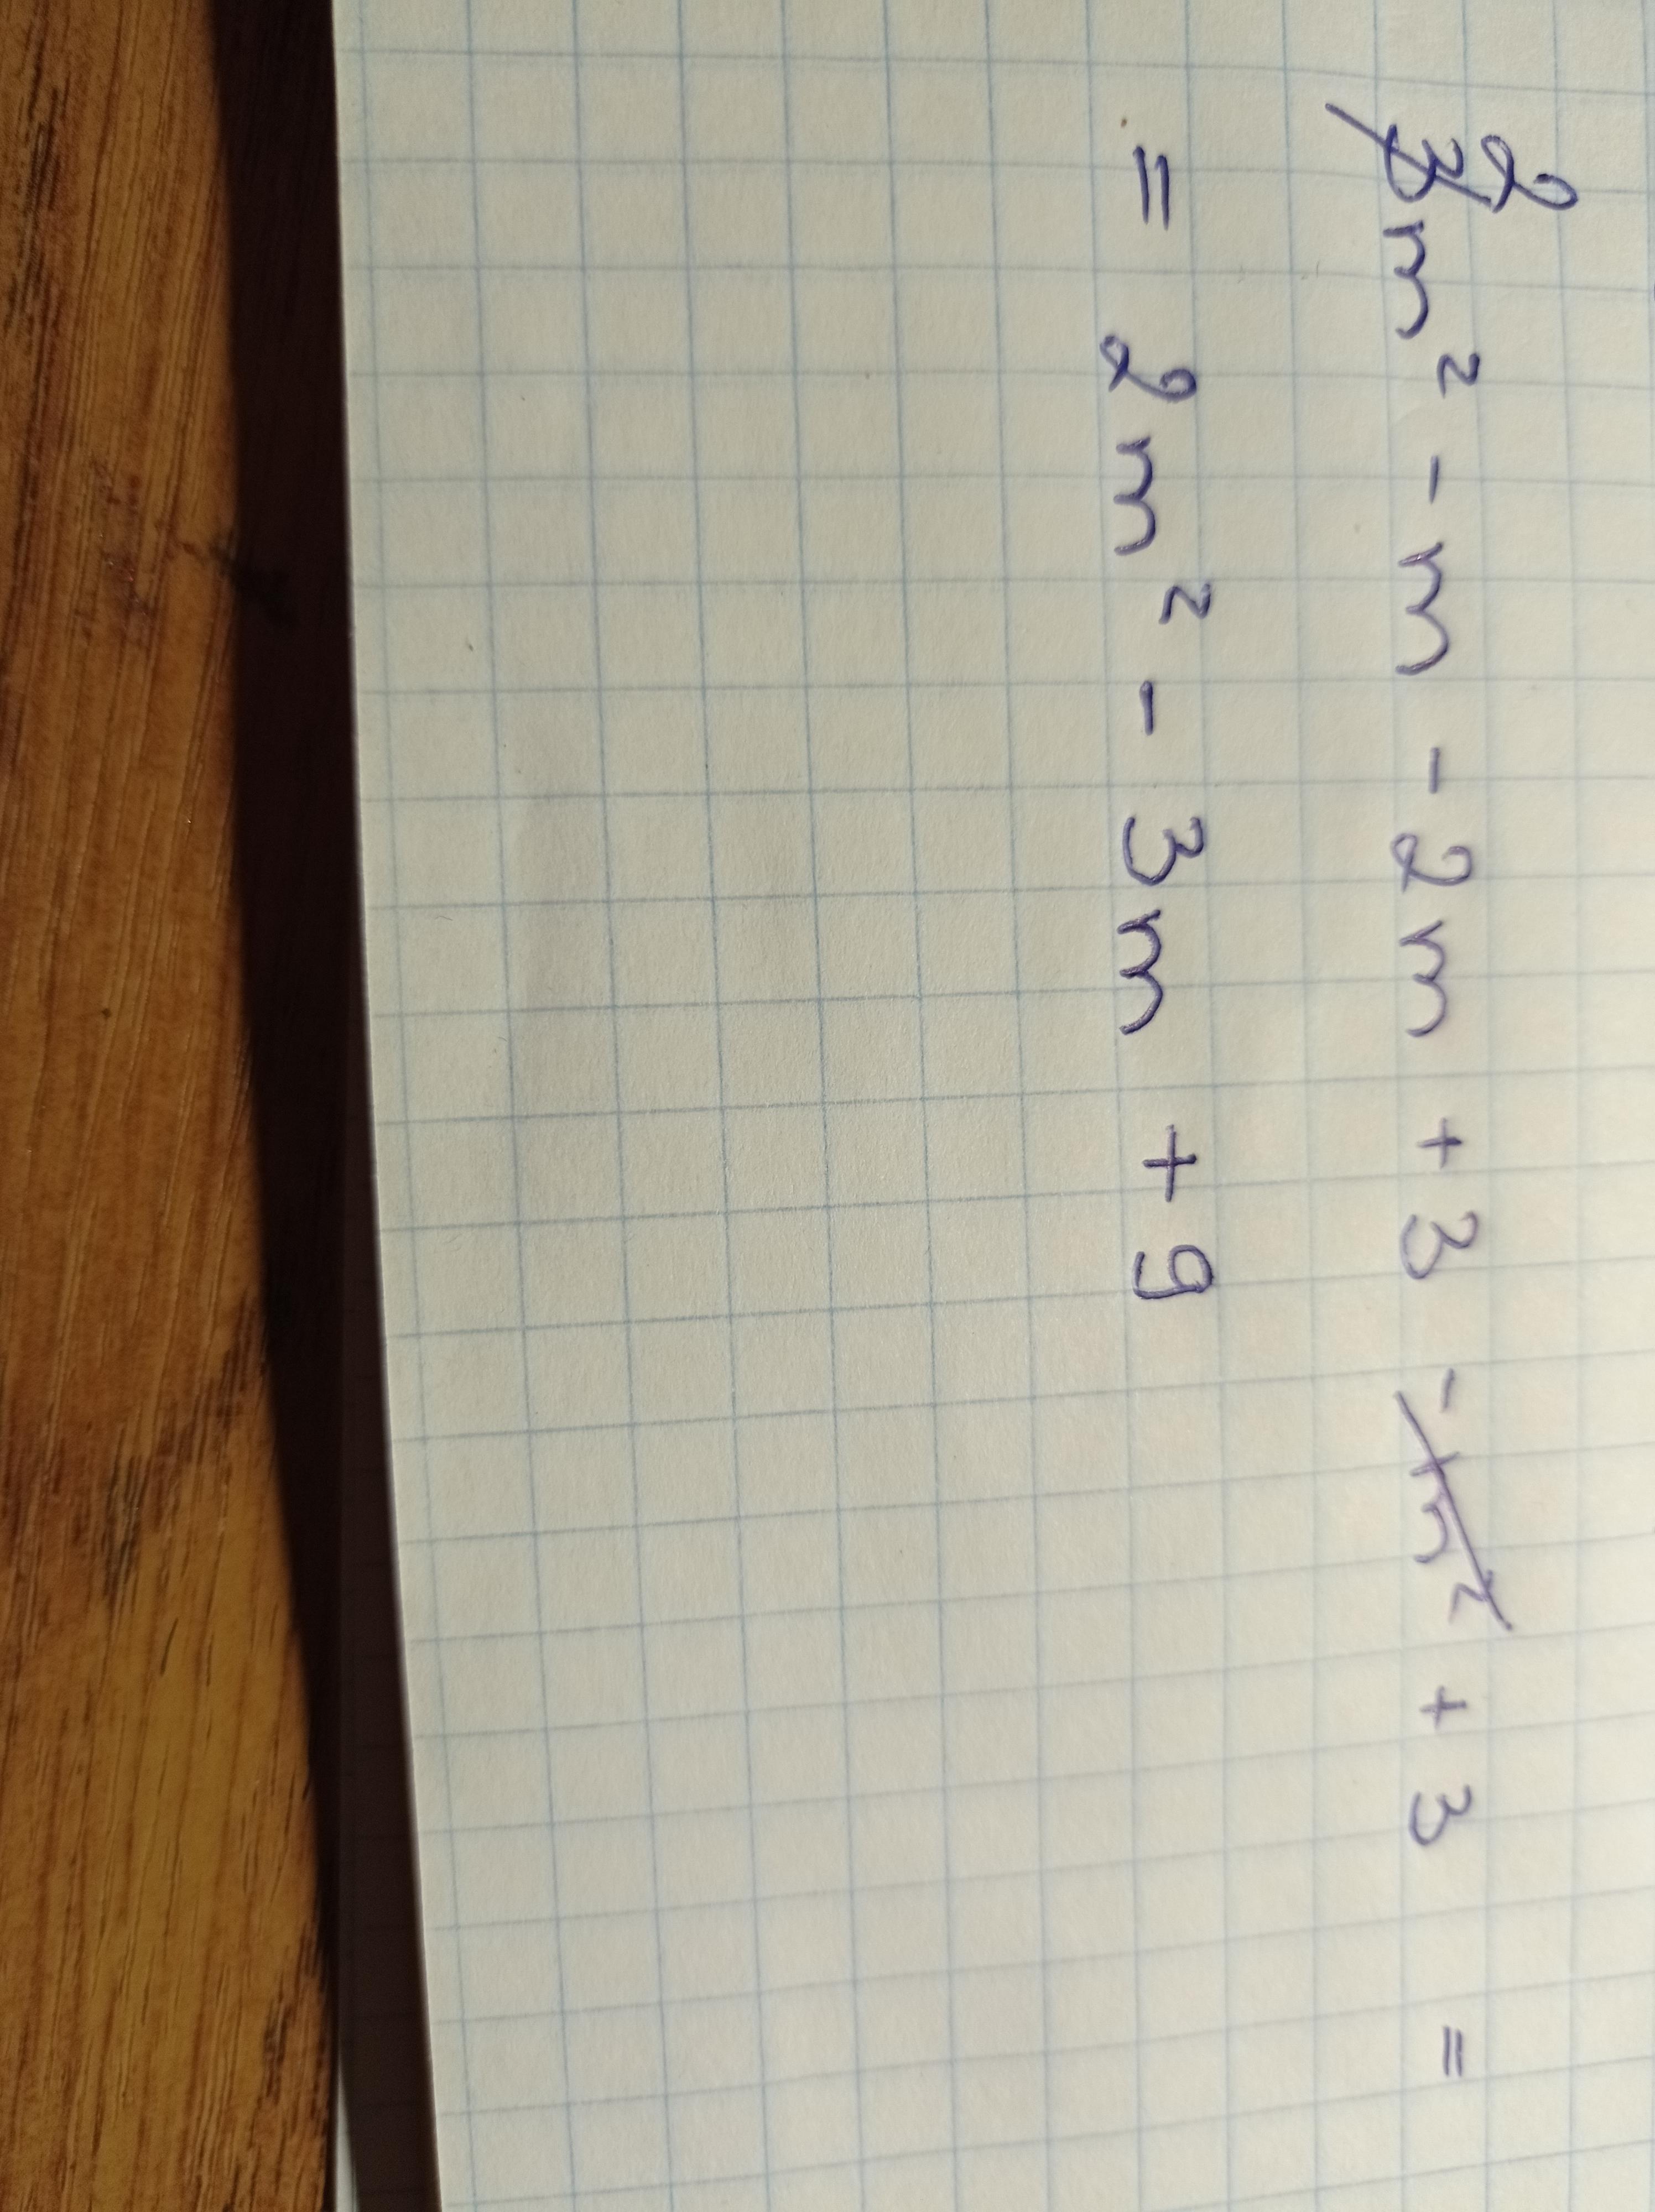 2
3m² - m - 2m + 3 - m² + 3 =
= 2m² - 3m + 9